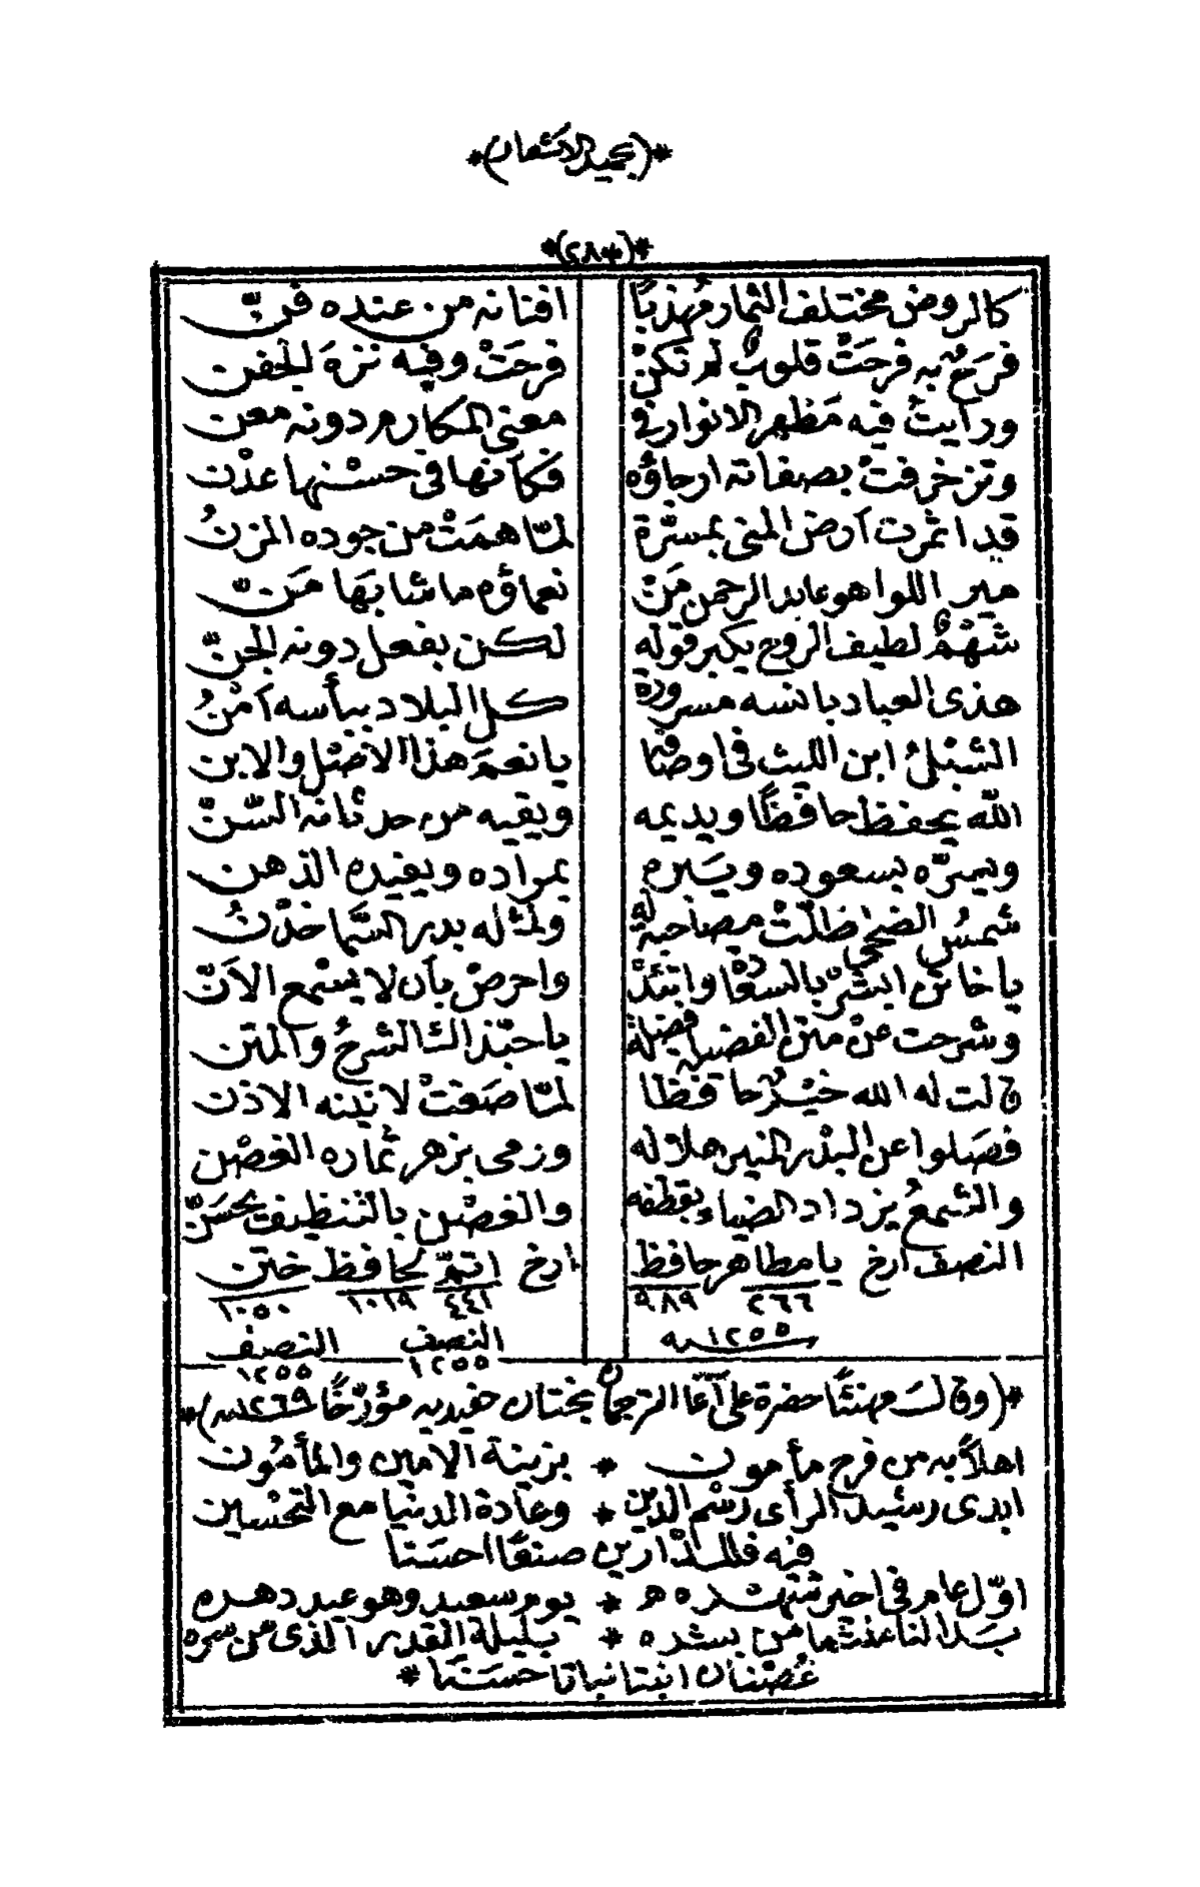 *(بحميد الاشعار)*
*(٢٨٣)*
كالروض مختلف الثمار مهذبًا افنانه من عنده فنّ
فرحٌ به فرحتْ قلوبٌ لم تكنْ فرحتْ وفيه نزه الجفن
ورايت فيه مظهر الانوار في معنى المكارم دونه معن
وتزخرفتْ بصفاته ارجاؤه فكأنها في حسنها عدْن
قد اثمرت ارض المنى بمسرّة لمّا همَتْ من جوده المزنُ
مير اللوا هو عابد الرحمن مَنْ نعماؤه ما شابَها مَنّ
شهْمٌ لطيف الروح يكبر قوله لكن بفعل دونه الجنّ
هذى العباد بانسه مسرورة كل البلاد ببأسه آمنُ
الشبْلُ ابن الليث في اوصافه يا نعمَ هذا الاصل والابن
الله يحفظ حافظًا ويديمه ويقيه من حدثانه السّنّ
ويسرّه بسعوده ويسَيره بمراده ويفيده الذهن
شمسُ الضحى ظلّتْ مصاحبة له ولمثله بدر السّما خدْنُ
يا خاتن ابشرْ بالسعادة واتئدْ واحرصْ بأن لا يسْمع الأنّ
وشرحت عنْ متن الفضيلة فضلة يا حبّذا الشرحُ والمتن
قالت له الله خيْرٌ حافظا لمّا صَغتْ لانينه الاذن
فصَلوا عن البدْر المنير هلاله وزهى بزهر ثماره الغصْن
والشمعُ يزداد الضياء بقطفه والغصْن بالتنظيف يحسَنّ
النصف ارخ يا مطاهر حافظ ارخ اتمّ لحافظ ختن
٢٦٦ ٩٨٩ ٤٤١ ١٠١٩ ١٠٥٠
١٢٥٥ سنه النصف ١٢٥٥ النصف ١٢٥٥
*(وقالـت مهنئًا حضرة على آغا الترجمان بختان حفيديه مؤرّخًا ١٢٦٩ سنه)*
اهلاً به من فرح مأمون * بزينة الامين والمأمون
ابدى رشيد الرأى رسْم الدين * وعادة الدنيا مع التحْسين
فيه فللـدارين صنعًا احسَنا
اوّل عام في اخير شهْـره * يوم سعيد وهو عيد دهره
بـدا لنا عنْدهما من بـشره * بليلة القدر الذى من سره
غُصْنان انبتا نباتا حسَنـا *